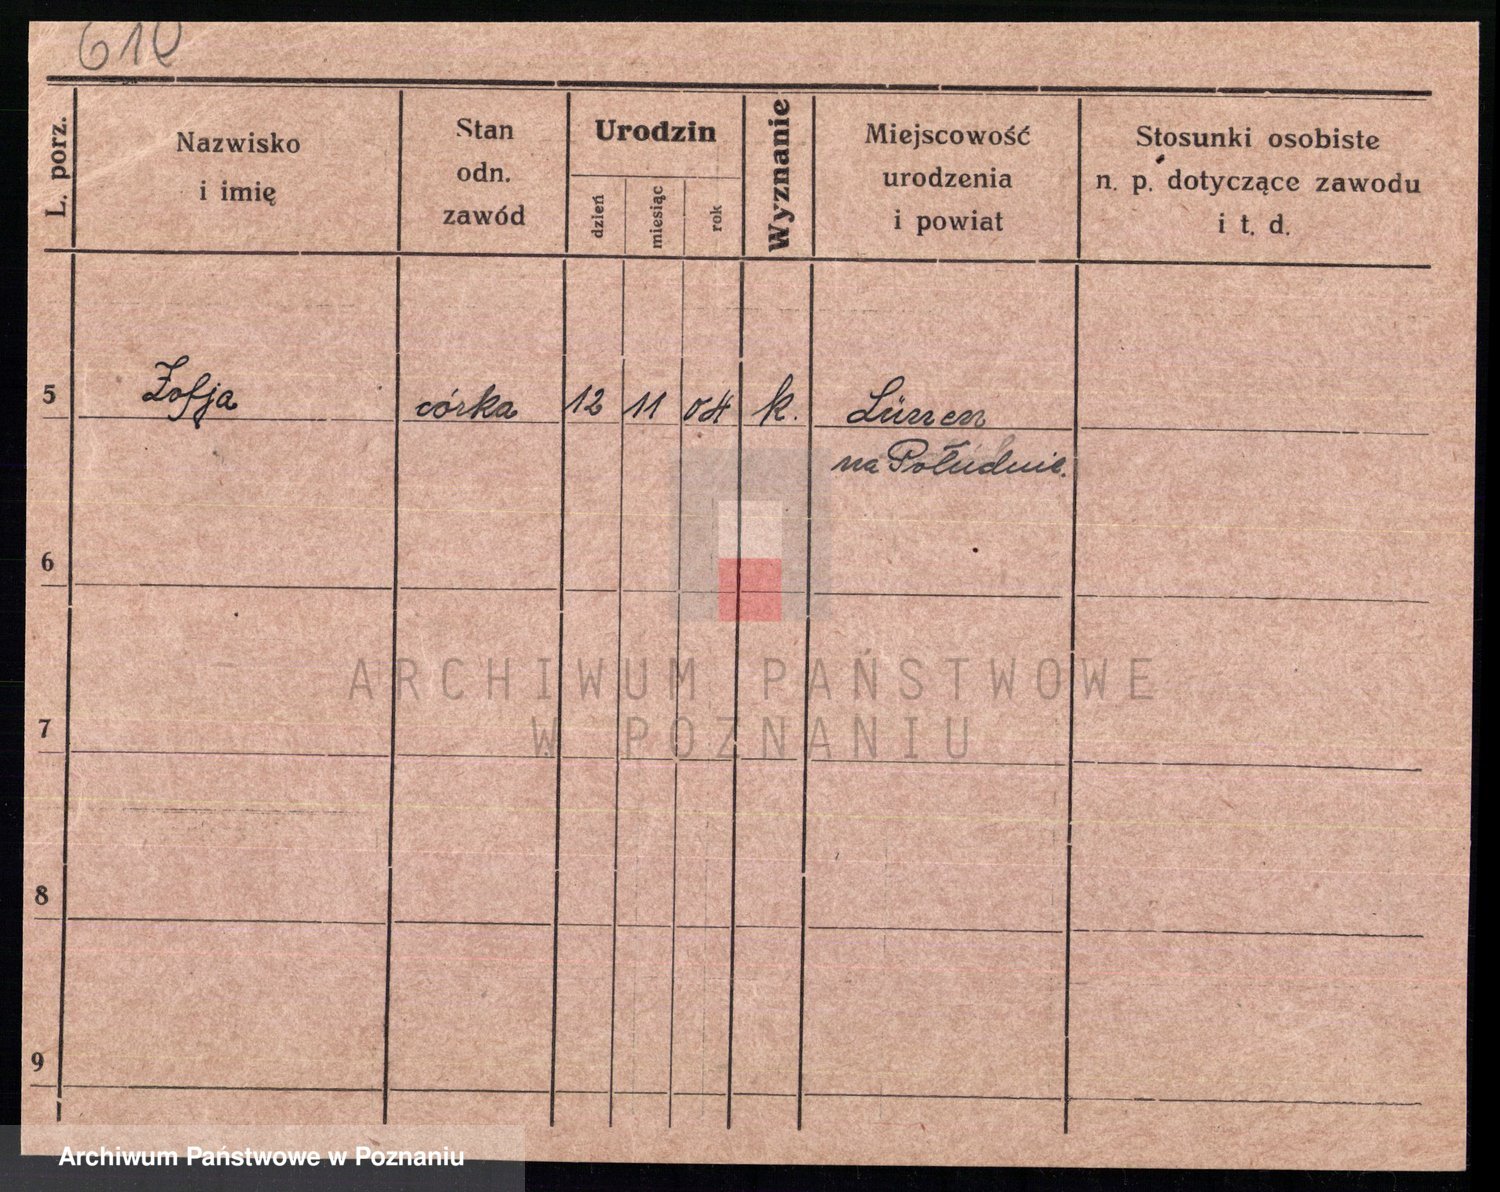 610
L. porz.
Nazwisko
i imię
Stan
odn.
zawód
Urodzin
dzień
miesiąc
rok
Wyznanie
Miejscowość
urodzenia
i powiat
Stosunki osobiste
n. p. dotyczące zawodu
i t. d.
5 Zofja córka 12 11 04 k. Lünen
na Południe.
6
7
8
9
ARCHIWUM PAŃSTWOWE
W POZNANIU
Archiwum Państwowe w Poznaniu